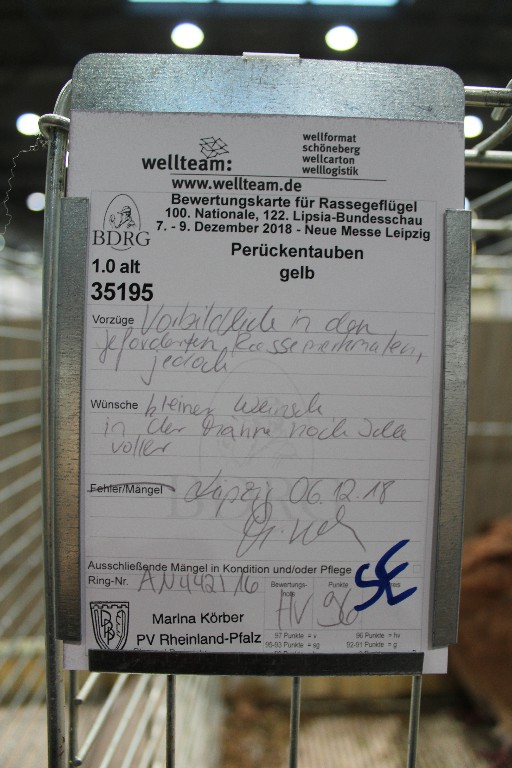 wellteam:
wellformat
schöneberg
wellcarton
welllogistik
www.wellteam.de
BDRG
Bewertungskarte für Rassegeflügel
100. Nationale, 122. Lipsia-Bundesschau
7. - 9. Dezember 2018 - Neue Messe Leipzig
Perückentauben
gelb
1.0 alt
35195
Vorzüge Vorbildlich in den
geforderten Rassemerkmalen,
jedoch
Wünsche kleiner Wunsch
in der Mähne noch
voller
Fehler/Mängel Leipzig 06.12.18
Ausschließende Mängel in Kondition und/oder Pflege
Ring-Nr. AN 442 / 16
Bewertungs-
note
HV
Punkte
96
SE
Marina Körber
PV Rheinland-Pfalz
97 Punkte = v
96 Punkte = hv
95-93 Punkte = sg
92-91 Punkte = g